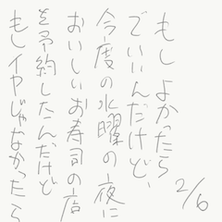 もしよかったら
でいいんだけど、
今度の水曜の夜に
おいしいお寿司の店
を予約したんだけど
もしイヤじゃなかったら
2/6